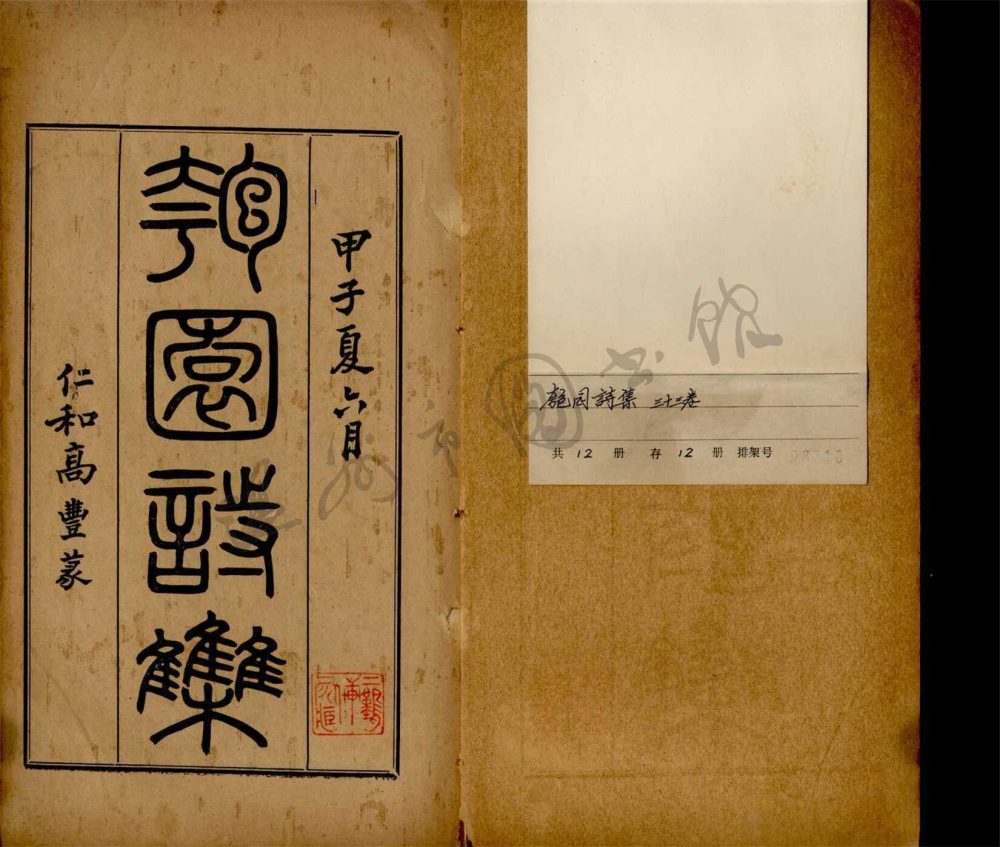 甲子夏六月
匏園詩集
仁和高豐篆
匏园詩集 三十三卷
共 12 册 存 12 册 排架号
州市圖書館